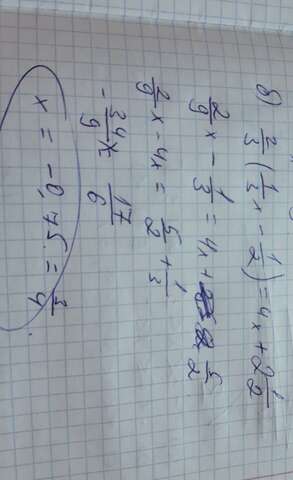 б) 2/3 (1/3 x - 1/2) = 4x + 2 1/2
2/9 x - 1/3 = 4x + 5/2
2/9 x - 4x = 5/2 + 1/3
- 34/9 x 17/6
x = -0,75 = 3/4.